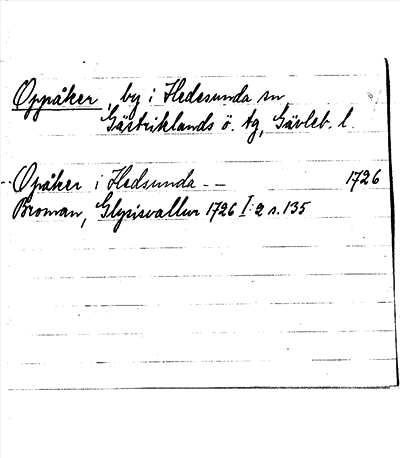 Oppåker, by i Hedesunda sn,
Gästriklands ö. tg, Gävleb. l.
Opåker i Hedsunda -- 1726
Broman, Glysisvallur 1726 I:2 s. 135